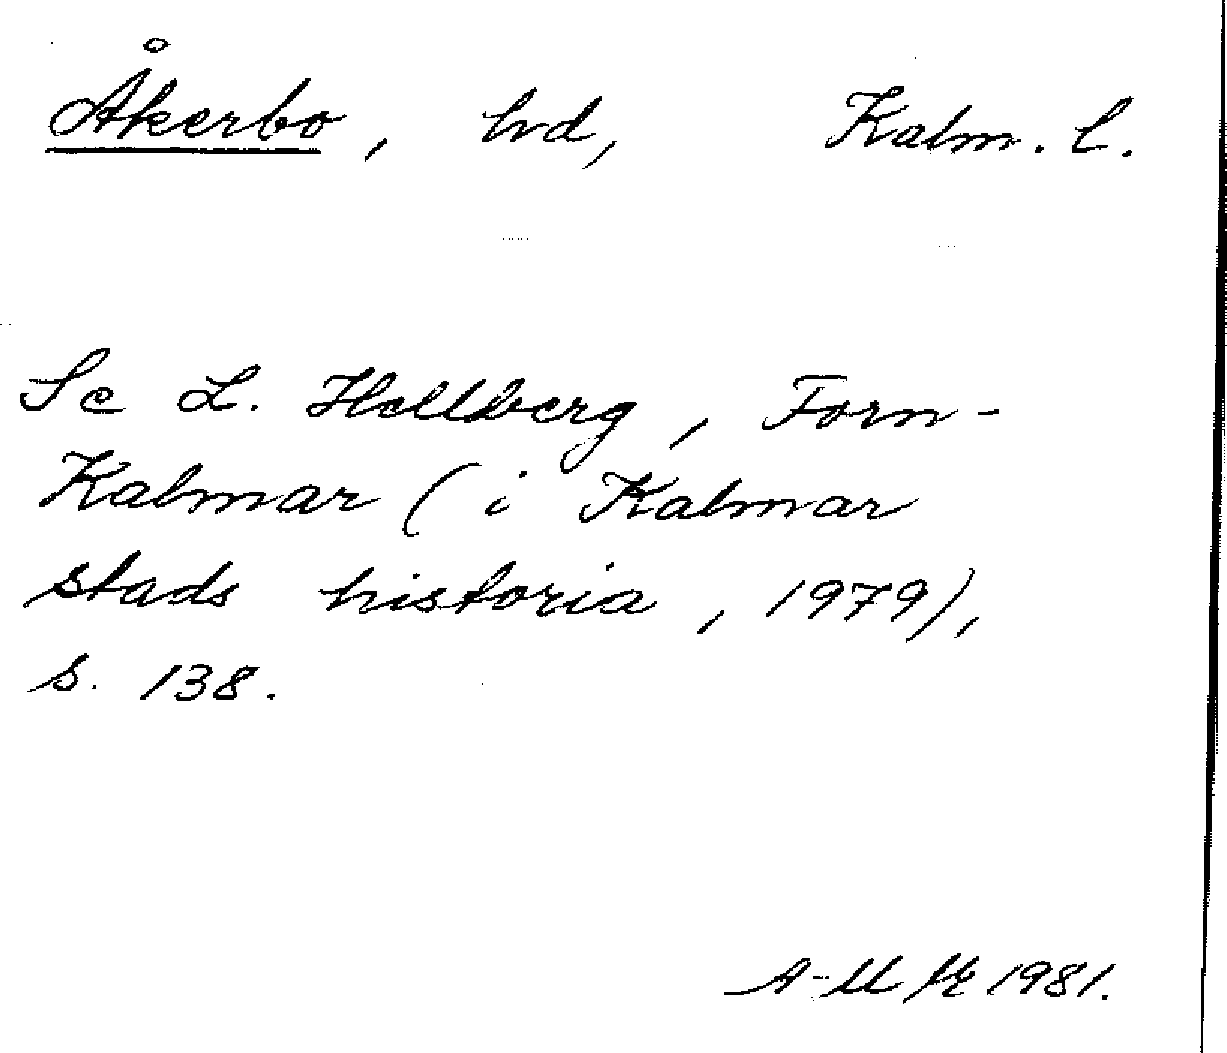 Åkerbo, hd, Kalm. l.
Se L. Hellberg, Forn-
Kalmar (i Kalmar
stads historia, 1979),
s. 138.
1981.